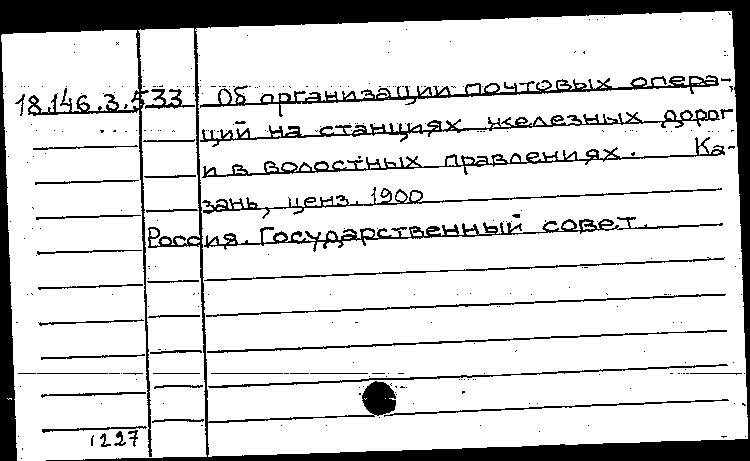 18.146.3.533 Об организации почтовых опера-
ций на станциях железных дорог
и в волостных правлениях. Ка-
зань, ценз. 1900
Россия. Государственный совет.
1227